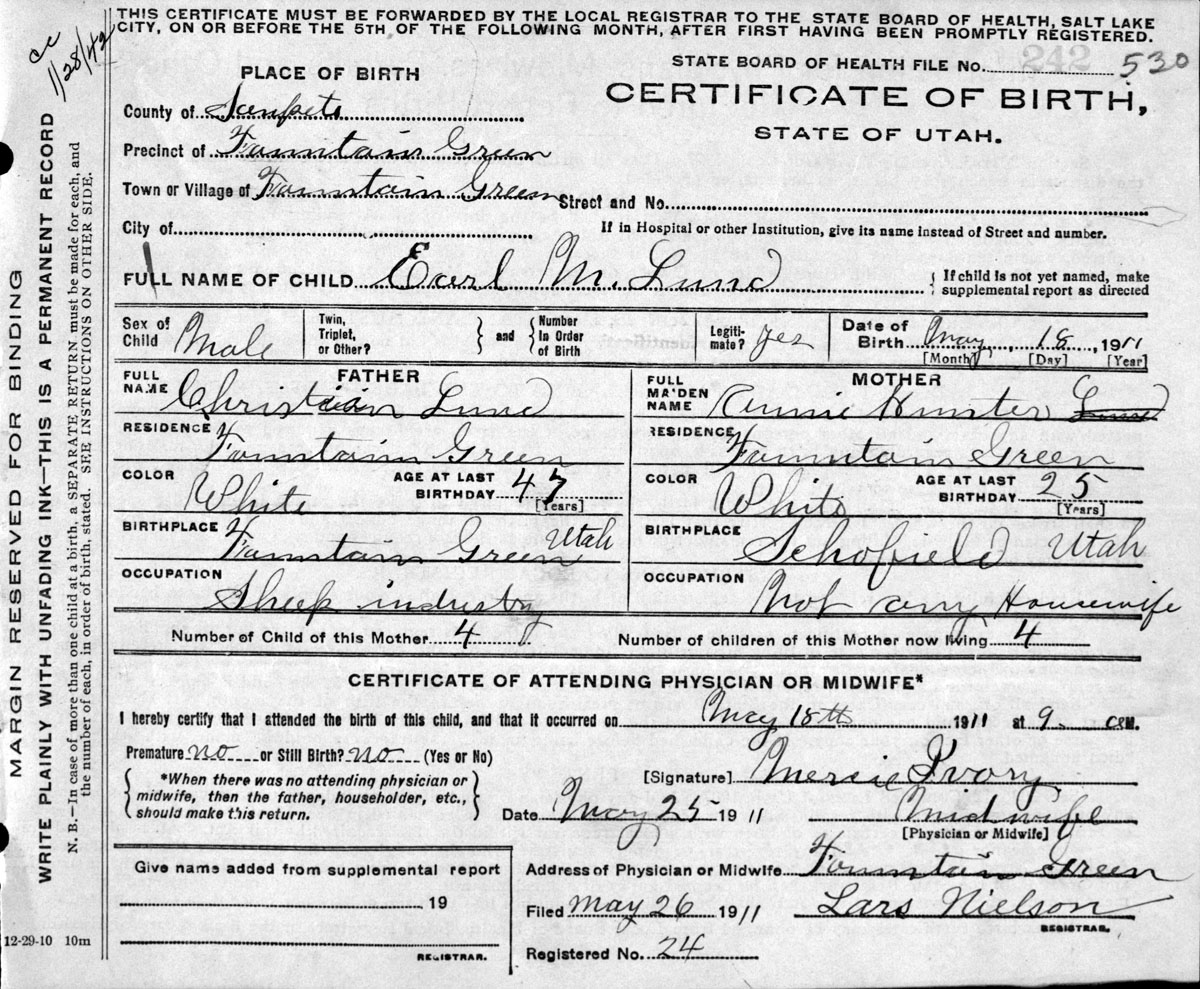 THIS CERTIFICATE MUST BE FORWARDED BY THE LOCAL REGISTRAR TO THE STATE BOARD OF HEALTH, SALT LAKE
CITY, ON OR BEFORE THE 5TH OF THE FOLLOWING MONTH, AFTER FIRST HAVING BEEN PROMPTLY REGISTERED.
cc
11/28/42
STATE BOARD OF HEALTH FILE No. 242 530
PLACE OF BIRTH
CERTIFICATE OF BIRTH,
STATE OF UTAH.
County of Sanpete
Precinct of Fountain Green
Town or Village of Fountain Green Street and No.
City of If in Hospital or other Institution, give its name instead of Street and number.
FULL NAME OF CHILD Earl M. Lund { If child is not yet named, make
supplemental report as directed
Sex of Child Male Twin, Triplet, or Other? } and { Number In Order of Birth Legiti-mate? yes Date of Birth May 18, 1911
[Month] [Day] [Year]
FATHER
FULL NAME Christian Lund
RESIDENCE Fountain Green
COLOR White AGE AT LAST BIRTHDAY 47 [Years]
BIRTHPLACE Fountain Green Utah
OCCUPATION Sheep industry
MOTHER
FULL MAIDEN NAME Annie Hunter Lund
RESIDENCE Fountain Green
COLOR White AGE AT LAST BIRTHDAY 25 [Years]
BIRTHPLACE Schofield Utah
OCCUPATION Not any Housewife
Number of Child of this Mother 4 Number of children of this Mother now living 4
CERTIFICATE OF ATTENDING PHYSICIAN OR MIDWIFE*
I hereby certify that I attended the birth of this child, and that it occurred on May 18th 1911 at 9. a M.
Premature no or Still Birth? no (Yes or No)
{ *When there was no attending physician or
midwife, then the father, householder, etc.,
should make this return. }
[Signature] Mercie Ivory
Date May 25 1911 Midwife
[Physician or Midwife]
Give name added from supplemental report
19
REGISTRAR.
Address of Physician or Midwife Fountain Green
Filed May 26 1911 Lars Nielson
REGISTRAR.
Registered No. 24
12-29-10 10m
MARGIN RESERVED FOR BINDING
WRITE PLAINLY WITH UNFADING INK—THIS IS A PERMANENT RECORD
N. B.—In case of more than one child at a birth, a SEPARATE RETURN must be made for each, and
the number of each, in order of birth, stated. SEE INSTRUCTIONS ON OTHER SIDE.